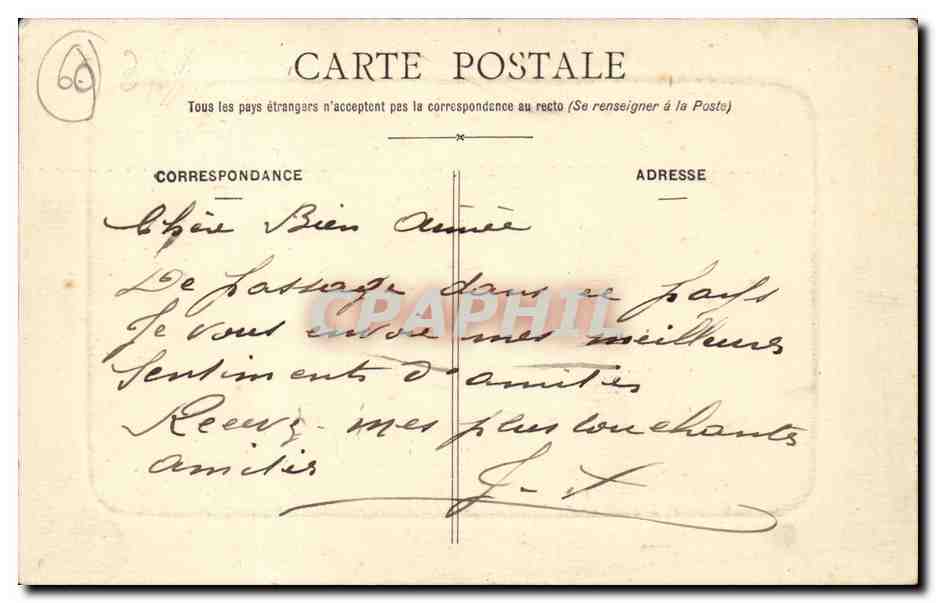 60
CARTE POSTALE
Tous les pays étrangers n'acceptent pas la correspondance au recto (Se renseigner à la Poste)
CORRESPONDANCE
ADRESSE
Chère Bien Aimée
De passage dans ce pays
Je vous envoie mes meilleurs
Sentiments d'amitiés
Recevez mes plus touchants
amitiés
CPAPHIL